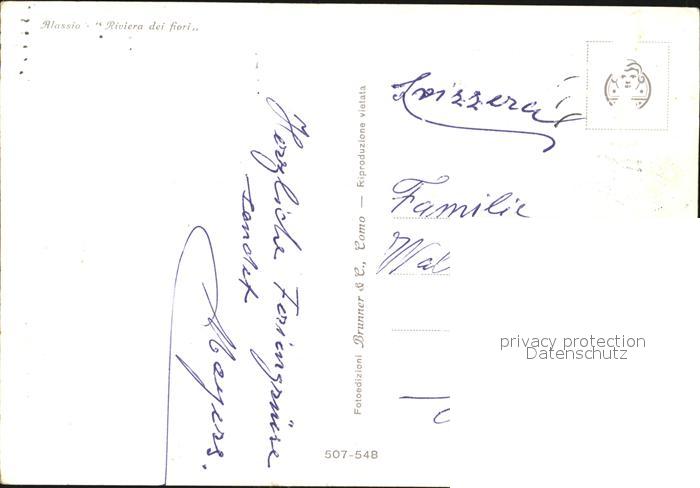 Alassio - "Riviera dei fiori„
Herzliche Feriengrüsse
sendet
Mayers.
Fotoedizioni Brunner & C., Como — Riproduzione vietata
507-548
Svizzera
Familie
Wal
privacy protection
Datenschutz